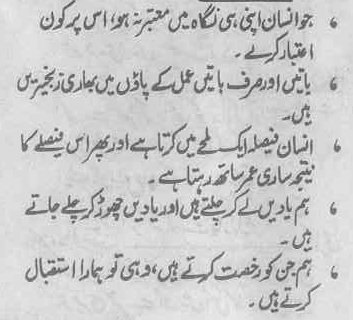 ، جو انسان اپنی ہی نگاہ میں معتبر نہ ہو، اس پر کون
اعتبار کرے۔
، باتیں اور صرف باتیں عمل کے پاؤں میں بھاری زنجیریں
ہیں۔
، انسان فیصلہ ایک لمحے میں کرتا ہے اور پھر اس فیصلے کا
نتیجہ ساری عمر ساتھ رہتا ہے۔
، ہم یادیں لے کر چلتے ہیں اور یادیں چھوڑ کر چلے جاتے
ہیں۔
، ہم جن کو رخصت کرتے ہیں، وہی تو ہمارا استقبال
کرتے ہیں۔